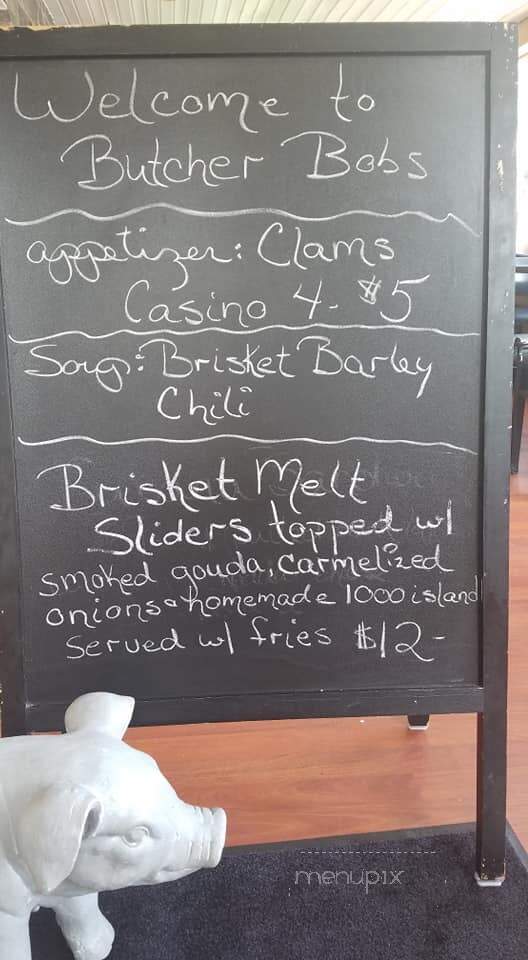 Welcome to
Butcher Bobs
appetizer: Clams
Casino 4- $5
Soup: Brisket Barley
Chili
Brisket Melt
Sliders topped w/
smoked gouda, carmelized
onions & homemade 1000 island
Served w/ fries $12-
menupix